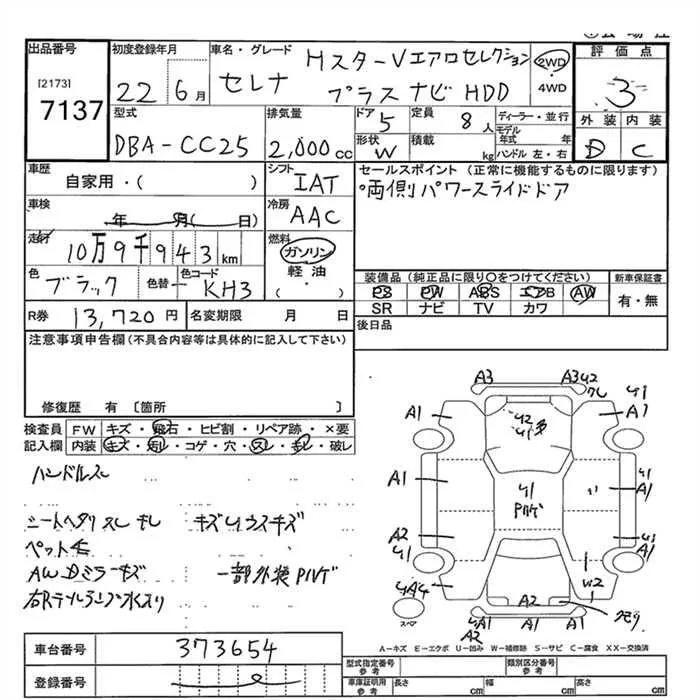 出品番号
[2173]
7137
初度登録年月
22年 6月
車名・グレード
セレナ
HスターVエアロセレクション
プラスナビHDD
2WD
4WD
評価点
3
外装 内装
D C
型式
DBA-CC25
排気量
2,000 cc
ドア
5
定員
8人
形状
W
積載
kg
ディーラー・並行
モデル年式 年
ハンドル 左・右
車歴
自家用・( )
シフト
IAT
セールスポイント (正常に機能するものに限ります)
両側パワースライドドア
車検
年 月( 日)
冷房
AAC
走行
10万9千943km
燃料
ガソリン
軽油
( )
色
ブラック
色替
カラーコード
KH3
装備品 (純正品に限り○をつけてください)
PS PW ABS エアB AW
SR ナビ TV カワ
新車保証書
有・無
R券 13,720円
名変期限 月 日
後日品
注意事項申告欄 (不具合内容等は具体的に記入して下さい)
修復歴 有 〔箇所 〕
検査員 FW キズ・飛石・ヒビ割・リペア跡・×要
記入欄 内装 キズ・汚レ・コゲ・穴・スレ・キレ・破レ
ハンドルスレ
シートヘタリ スレ キレ キズUウスキズ
AWDミラーキズ 一部外装PハゲU
右Rテールランプ水入り
A3 A3U2
A1 U1 A1
U2
A1 U1 A1
Pハゲ
A2 U1 U1 A1
UA4 W2
A2
UA1 A1 A1
A2
スペア
A－キズ E－エクボ U－凹み W－補修跡 S－サビ C－腐食 XX－交換済
車台番号 373654
登録番号
型式指定番号 参考
類別区分番号 参考
車庫証明用 参考 長さ cm 幅 cm 高さ cm